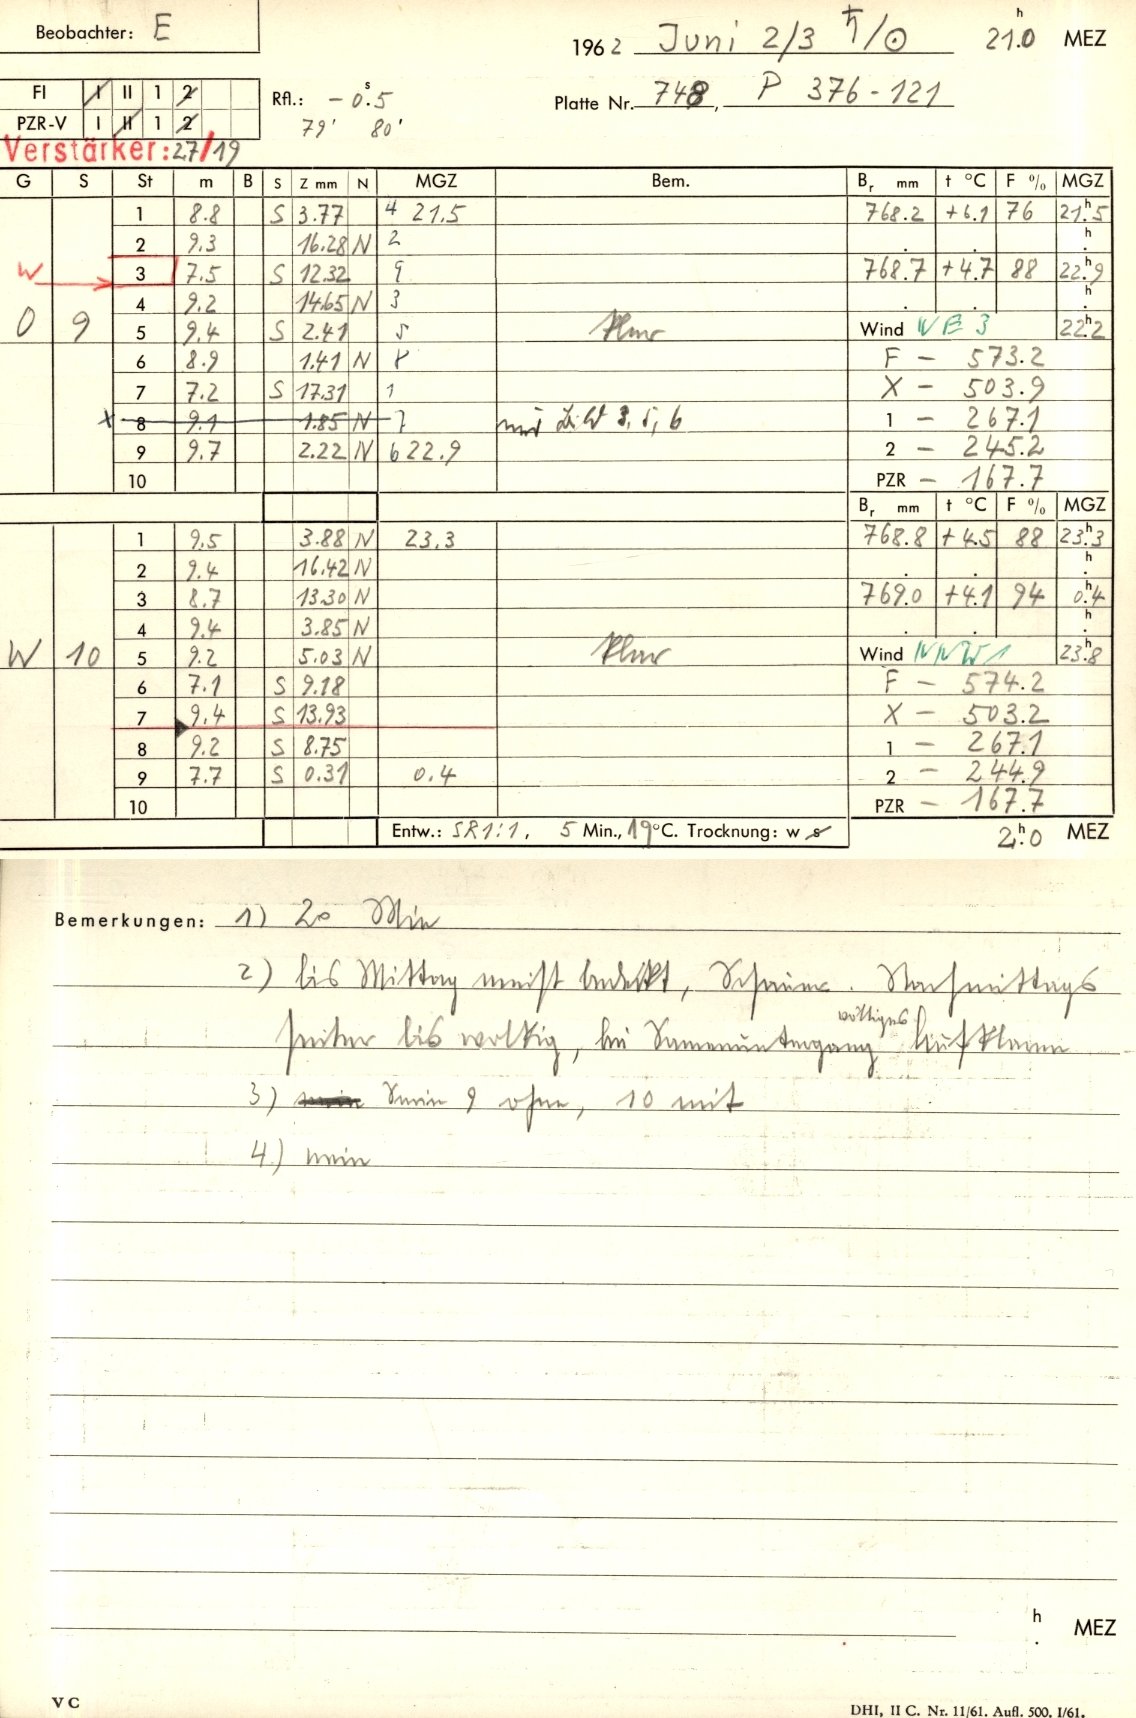 Beobachter: E
1962 Juni 2/3 ♄/☉ 21ʰ.0 MEZ
FI I II 1 2
PZR-V I II 1 2
Rfl.: - 0ˢ.5
79' 80'
Platte Nr. 748, P 376-121
Verstärker: 27/19
G S St m B S Z mm N MGZ Bem. Bᵣ mm t °C F % MGZ
1 8.8 S 3.77 4 21.5 768.2 +6.1 76 21ʰ.5
2 9.3 16.28 N 2 . . ʰ.
W 3 7.5 S 12.32 9 768.7 +4.7 88 22ʰ.9
4 9.2 14.65 N 3 . . ʰ.
O 9 5 9.4 S 2.41 5 klar Wind NE 3 22ʰ.2
6 8.9 1.41 N 8 F - 573.2
7 7.2 S 17.31 1 X - 503.9
x 8 9.1 1.85 N 7 nur 3, 5, 6 1 - 267.1
9 9.7 2.22 N 6 22.9 2 - 245.2
10 PZR - 167.7
Bᵣ mm t °C F % MGZ
1 9.5 3.88 N 23.3 768.8 +4.5 88 23ʰ.3
2 9.4 16.42 N . . ʰ.
3 8.7 13.30 N 769.0 +4.1 94 0ʰ.4
4 9.4 3.85 N . . ʰ.
W 10 5 9.2 5.03 N klar Wind NNW 1 23ʰ.8
6 7.1 S 9.18 F - 574.2
7 9.4 S 13.93 X - 503.2
8 9.2 S 8.75 1 - 267.1
9 7.7 S 0.31 0.4 2 - 244.9
10 PZR - 167.7
Entw.: SR 1:1, 5 Min., 19°C. Trocknung: w s 2ʰ.0 MEZ
Bemerkungen: 1) 20 Min
2) bis Mittag meist bedeckt, Schauer. Nachmittags
heiter bis wolkig, bei Sonnenuntergang völliges Aufklaren
3) Serie 9 ohne, 10 mit
4.) nein
ʰ. MEZ
V C
DHI, II C. Nr. 11/61. Aufl. 500. I/61.